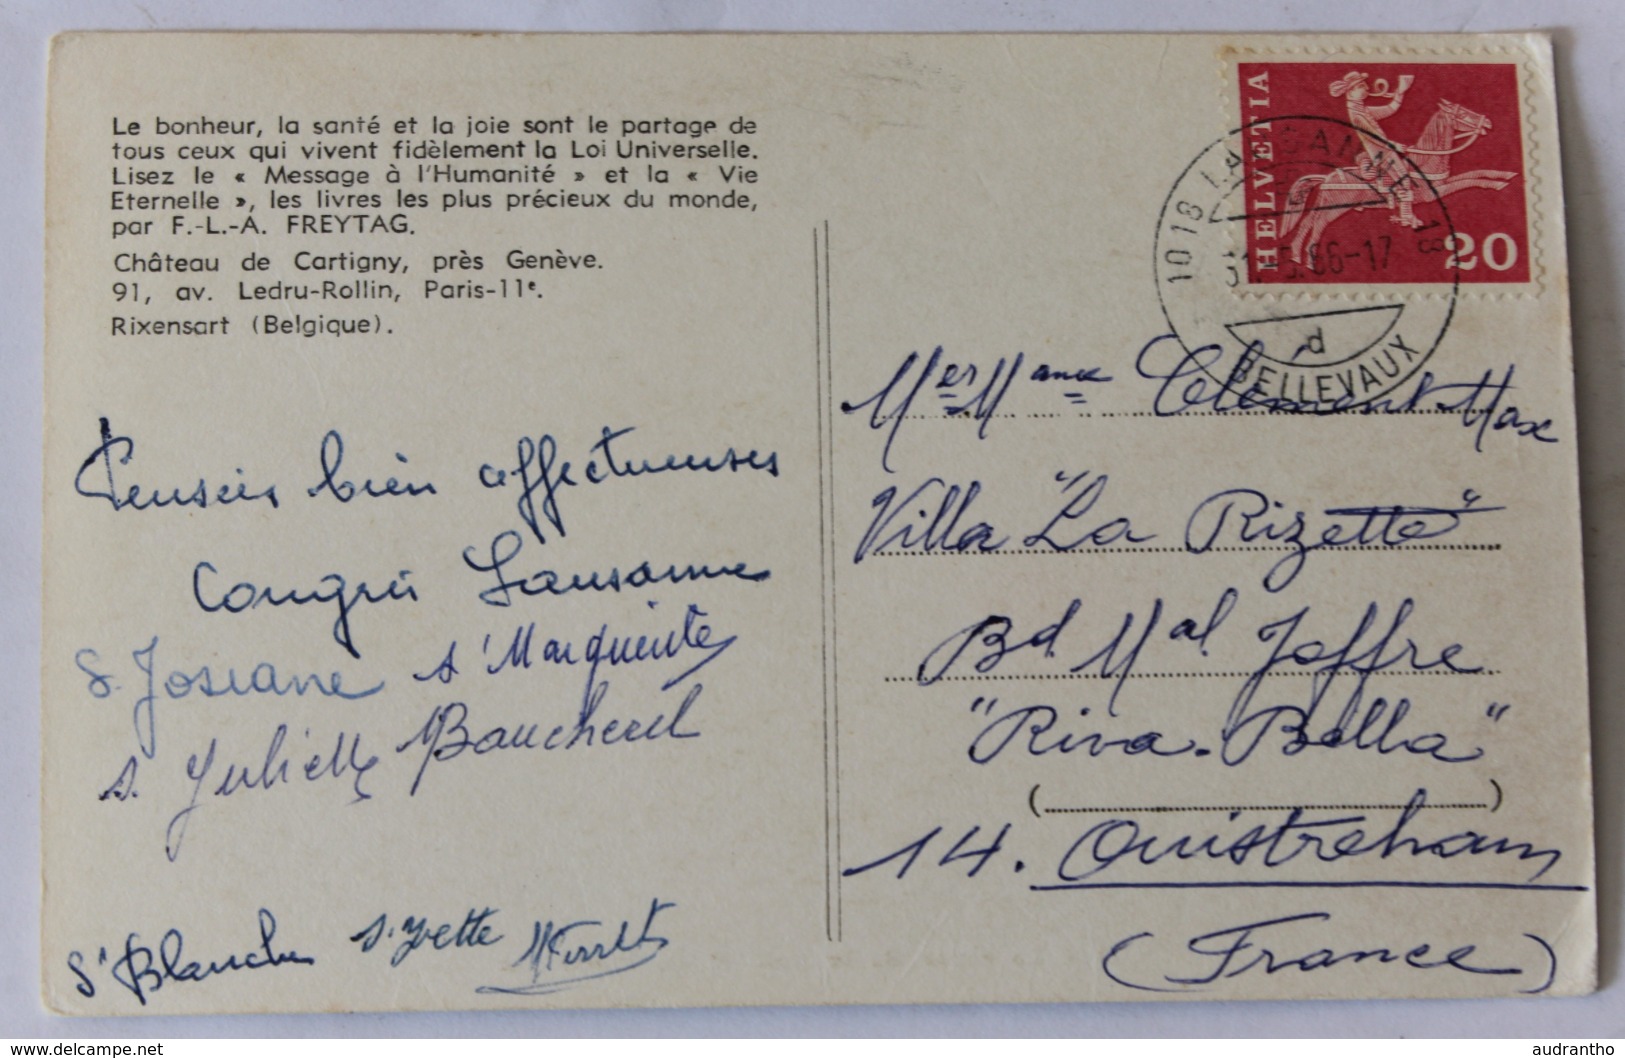 Le bonheur, la santé et la joie sont le partage de
tous ceux qui vivent fidèlement la Loi Universelle.
Lisez le « Message à l'Humanité » et la « Vie
Eternelle », les livres les plus précieux du monde,
par F.-L.-A. FREYTAG.
Château de Cartigny, près Genève.
91, av. Ledru-Rollin, Paris-11e.
Rixensart (Belgique).
Pensées bien affectueuses
Congrès Lausanne
S. Josiane s' Marguerite
s. Juliette Baucherel
S' Blanche s. Yvette
HELVETIA
20
1018 LAUSANNE 18
.66-17
d
BELLEVAUX
Clément Max
Villa "La Rizette"
Bd Mal Joffre
"Riva-Bella"
14. Ouistreham
(France)
www.delcampe.net
audrantho